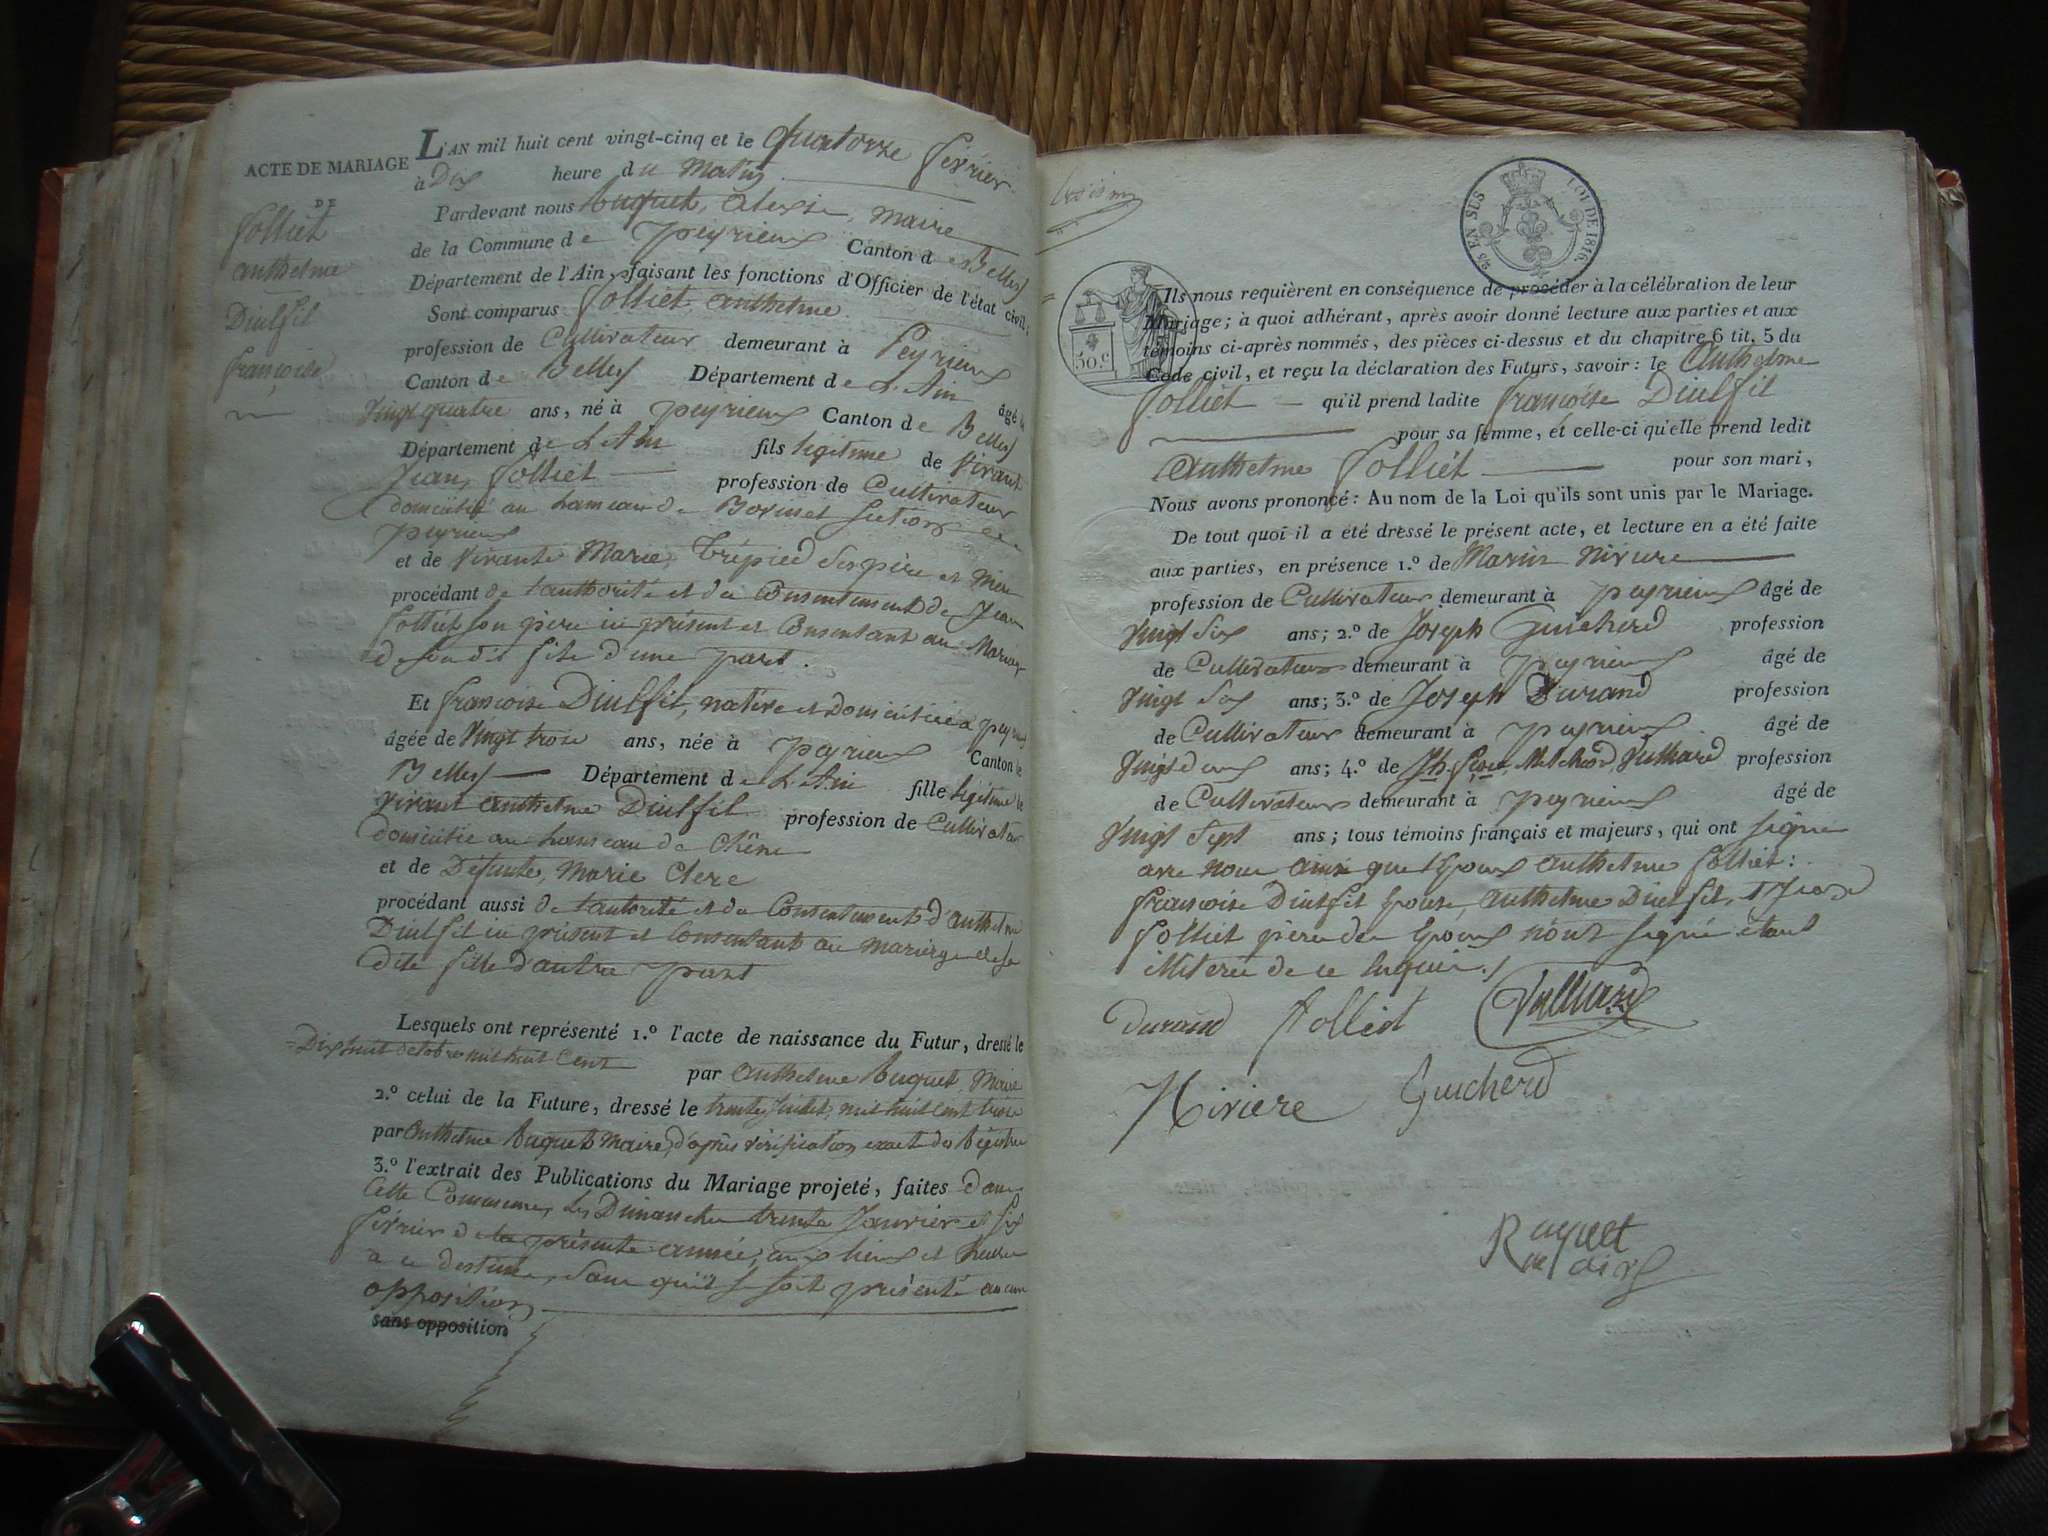 ACTE DE MARIAGE
DE
folliet
anthelme
Diulfil
françoise
L'AN mil huit cent vingt-cinq et le Quatorze février
à Dix heure du Matin
Pardevant nous Alexis, Maire
de la Commune de peyrieux Canton de Belley
Département de l'Ain, faisant les fonctions d'Officier de l'état civil,
Sont comparus folliet anthelme
profession de Cultivateur demeurant à Peyrieux
Canton de Belley Département de L'Ain âgé de
Vingt quatre ans, né à peyrieux Canton de Belley
Département de L'Ain fils légitime de Vivant
Jean folliet profession de Cultivateur
domicilié au hameau de Section de
peyrieux
et de Vivante Marie Trépied Ses père et Mère
procédant de l'authorité et du Consentement de Jean
folliet son père ici présent et Consentant au Mariage
de son dit fils d'une part.
Et françoise Diulfil, native et domiciliée à peyrieux
âgée de Vingt trois ans, née à peyrieux Canton de
Belley Département de L'Ain fille légitime de
Vivant anthelme Diulfil profession de Cultivateur
domicilié au hameau de Chêne
et de Défunte, Marie Clerc
procédant aussi de l'autorité et du Consentement d'anthelme
Diulfil ici présent et Consentant au mariage de sa
dite fille d'autre part
Lesquels ont représenté 1.º l'acte de naissance du Futur, dressé le
Dix huit octobre mil huit Cent par anthelme buquet, Maire
2.º celui de la Future, dressé le trente Juillet mil huit Cent trois
par anthelme buquet Maire, d'après vérification exacte des Régistres
3.º l'extrait des Publications du Mariage projeté, faites dans
Cette Commune, Les Dimanches trente Janvier et Six
février de la présente année, aux lieux et heures
a ce destinés, Sans qu'il se soit présenté aucune
opposition
sans opposition
25 EN SUS
LOI DE 1816.
50.c
Ils nous requièrent en conséquence de procéder à la célébration de leur
Mariage; à quoi adhérant, après avoir donné lecture aux parties et aux
témoins ci-après nommés, des pièces ci-dessus et du chapitre 6 tit. 5 du
Code civil, et reçu la déclaration des Futurs, savoir: le Anthelme
folliet qu'il prend ladite françoise Diulfil
pour sa femme, et celle-ci qu'elle prend ledit
anthelme folliet pour son mari,
Nous avons prononcé: Au nom de la Loi qu'ils sont unis par le Mariage.
De tout quoi il a été dressé le présent acte, et lecture en a été faite
aux parties, en présence 1.º de Marin niviere
profession de Cultivateur demeurant à peyrieux âgé de
Vingt Six ans; 2.º de Joseph Guicherd profession
de Cultivateur demeurant à peyrieux âgé de
Vingt Six ans; 3.º de Joseph Durand profession
de Cultivateur demeurant à peyrieux âgé de
Vingt deux ans; 4.º de Jh. Melchiod Vulliard profession
de Cultivateur demeurant à peyrieux âgé de
Vingt Sept ans; tous témoins français et majeurs, qui ont signé
avec nous ainsi que l'époux anthelme folliet:
françoise Diulfil épouse, anthelme Diulfil, et Jean
folliet père de l'époux n'ont signé étant
illiterés de ce enquis./
Durand folliet Vulliard
Niviere Guicherd
Ruquet